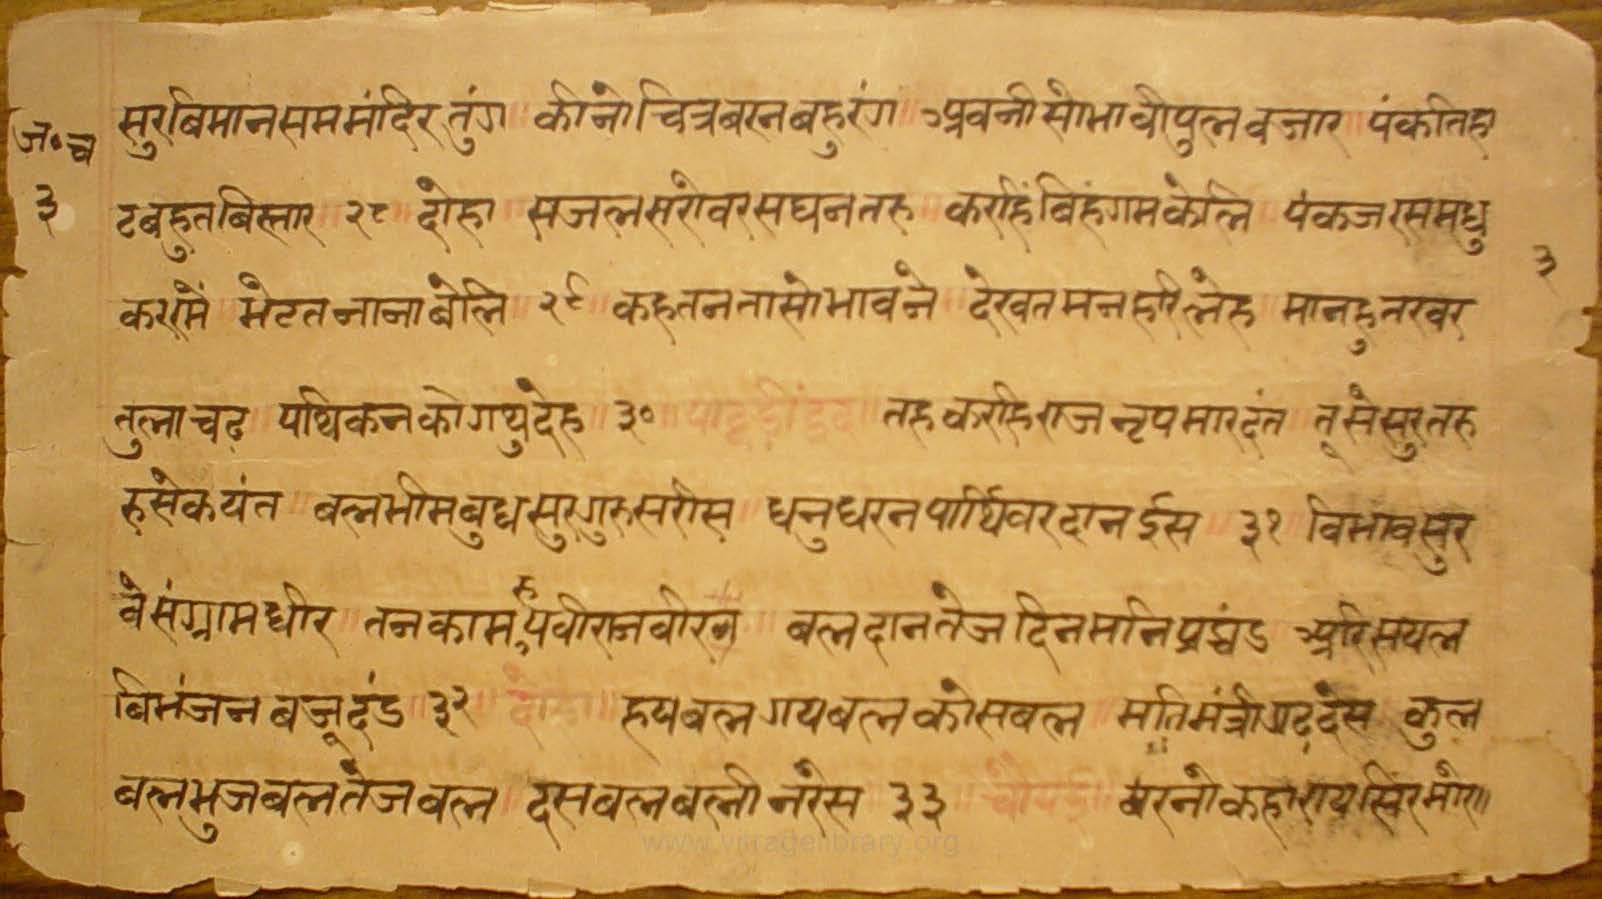 सुरबिमानसममंदिरतुंग॥ कीनोचित्रबरनबहुरंग॥ अवनीसोभावीपुलबजार॥ पंकतिहा
ज॰च
३
टबहुतबिस्तार॥ २८॥ दोहा॥ सजलसरोवरसघनतरु॥ करहिंबिहंगमकेलि॥ पंकजरसमधु
३
कररमें॥ भेटतनानाबेलि॥ २९॥ कहतनतासोभावने॥ देखतमनहरिलेह॥ मानहुतरवर
तुलाचढ॥ पथिकनको देह॥ ३०॥ पाद्धडीछंद॥ तहकरहिराजनृपमारदंत॥ तूसेसुरतरु
रुसेकयंत॥ बलभीमबुधसुरगुरुसरीस॥ धनुधरनपार्थिवरदानईस॥ ३१॥ विभावसुर
वेसंग्रामधीर॥ तनकाम बलदानतेजदिनमनिप्रचंड॥ अरिसयल
बिभंजनबज्रदंड॥ ३२॥ दोहा॥ हयबलगयबलकोसबल॥ मतिमंत्रीगढदेस॥ कुल
बलभुजबलतेजबल॥ दसबलबलीनरेस॥ ३३॥ चौपई॥ बरनोकहारायसिरमोर॥
www.vitragelibrary.org